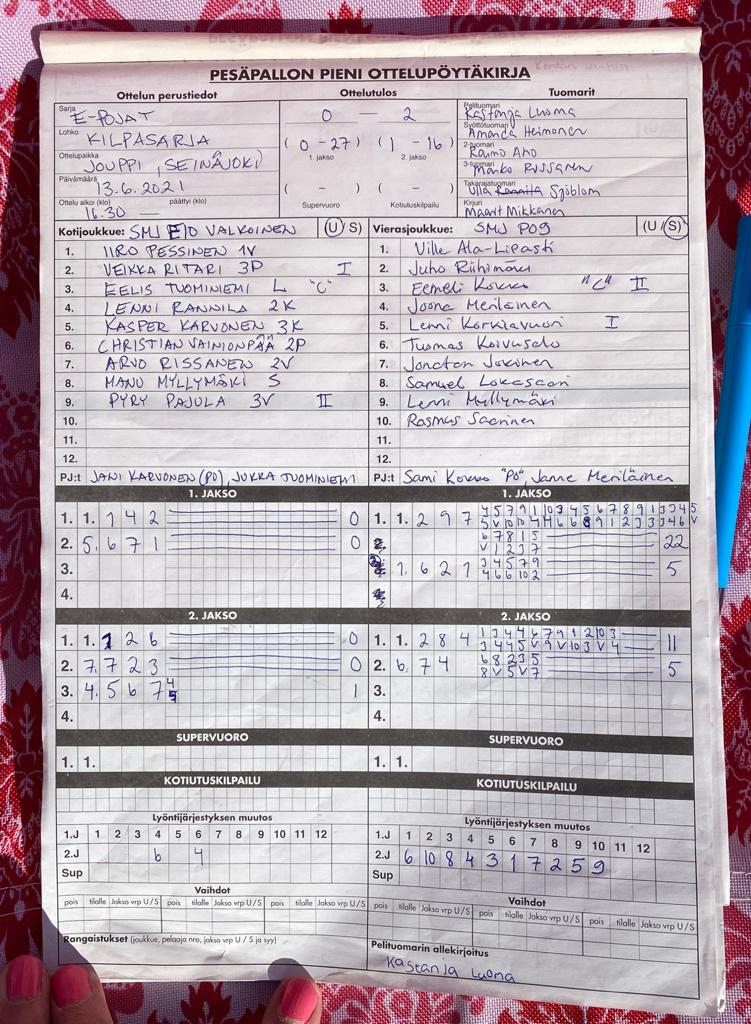 PESÄPALLON PIENI OTTELUPÖYTÄKIRJA
Ottelun perustiedot
Ottelutulos
Tuomarit
Sarja
E-POJAT
Lohko
KILPASARJA
Ottelupaikka
JOUPPI, SEINÄJOKI
Päivämäärä
13.6.2021
Ottelu alkoi (klo) päättyi (klo)
16.30 —
0 — 2
(0-27) (1-16)
1. jakso 2. jakso
( - ) ( - )
Supervuoro Kotiutuskilpailu
Pelituomari
Kastanja Luoma
Syöttötuomari
Amanda Heimonen
2-tuomari
Raimo Aho
3-tuomari
Marko Rissanen
Takarajatuomari
Ulla Sjöblom
Kirjuri
Maarit Mikkanen
Kotijoukkue: SMJ E10 VALKOINEN (U/S)
1. IIRO PESSINEN 1V
2. VEIKKA RITARI 3P I
3. EELIS TUOMINIEMI L "C"
4. LENNI RANNILA 2K
5. KASPER KARVONEN 3K
6. CHRISTIAN VAINIONPÄÄ 2P
7. ARVO RISSANEN 2V
8. MANU MYLLYMÄKI S
9. PYRY PAJULA 3V II
10.
11.
12.
PJ:t JANI KARVONEN (PO), JUKKA TUOMINIEMI
Vierasjoukkue: SMJ P09 (U/S)
1. Ville Ala-Lipasti
2. Juho Riihimäki
3. Eemeli Kokko "C" II
4. Joona Meriläinen
5. Lenni Korkiavuori I
6. Tuomas Koivusalo
7. Jonatan Jokinen
8. Samuel Lokasaari
9. Lenni Myllymäki
10. Rasmus Saarinen
11.
12.
PJ:t Sami Kokko "PO", Janne Meriläinen
1. JAKSO
1. 1. 1 4 2 0
2. 5. 6 7 1 0
3.
4.
1. JAKSO
1. 1. 2 9 7
22
1. 6 2 1 3 4 5 7 9 5
4 6 6 10 2
2. JAKSO
1. 1. 1 2 6 0
2. 7. 7 2 3 0
3. 4. 5 6 7 1
4.
2. JAKSO
1. 1. 2 8 4 1 3 4 4 6 7 9 1 2 10 3 11
3 4 4 5 V 9 V 10 3 V 4
2. 6. 7 4 6 8 2 3 5 5
8 V 5 V 7
3.
4.
SUPERVUORO
1. 1.
SUPERVUORO
1. 1.
KOTIUTUSKILPAILU
KOTIUTUSKILPAILU
Lyöntijärjestyksen muutos
1.J 1 2 3 4 5 6 7 8 9 10 11 12
2.J 6 4
Sup
Lyöntijärjestyksen muutos
1.J 1 2 3 4 5 6 7 8 9 10 11 12
2.J 6 10 8 4 3 1 7 2 5 9
Sup
Vaihdot
pois tilalle Jakso vrp U/S pois tilalle Jakso vrp U/S pois tilalle Jakso vrp U/S
Vaihdot
pois tilalle Jakso vrp U/S pois tilalle Jakso vrp U/S pois tilalle Jakso vrp U/S
Rangaistukset (joukkue, pelaaja nro, jakso vrp U/S ja syy)
Pelituomarin allekirjoitus
Kastanja Luoma